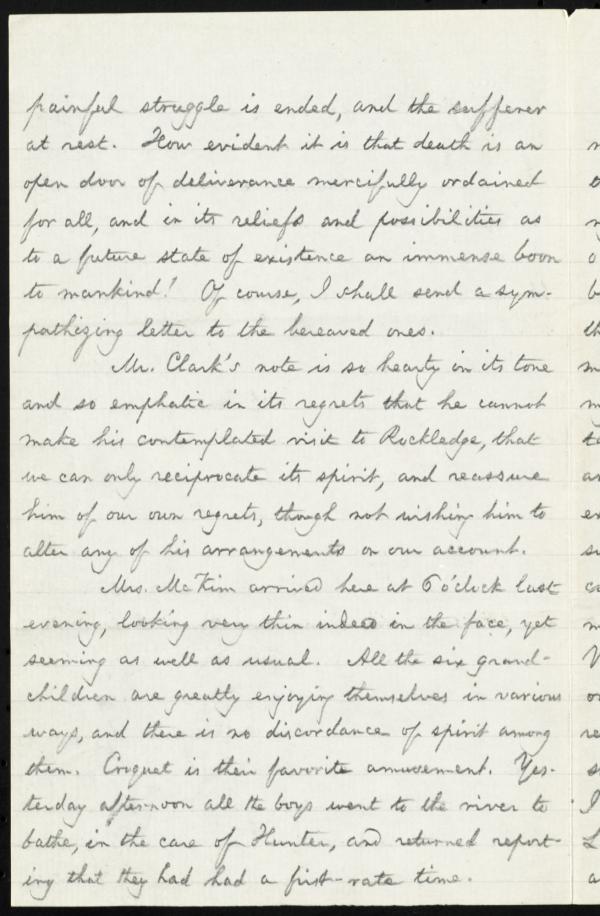 painful struggle is ended, and the sufferer
at rest. How evident it is that death is an
open door of deliverance mercifully ordained
for all, and in its reliefs and possibilities as
to a future state of existence an immense boon
to mankind! Of course, I shall send a sym-
pathizing letter to the bereaved ones.
Mr. Clark's note is so hearty in its tone
and so emphatic in its regrets that he cannot
make his contemplated visit to Rockledge, that
we can only reciprocate its spirit, and reassure
him of our own regrets, though not wishing him to
alter any of his arrangements on our account.
Mrs. McKim arrived here at 6 o'clock last
evening, looking very thin indeed in the face, yet
seeming as well as usual. All the six grand-
children are greatly enjoying themselves in various
ways, and there is no discordance of spirit among
them. Croquet is their favorite amusement. Yes-
terday afternoon all the boys went to the river to
bathe, in the care of Hunter, and returned report-
ing that they had had a first-rate time.